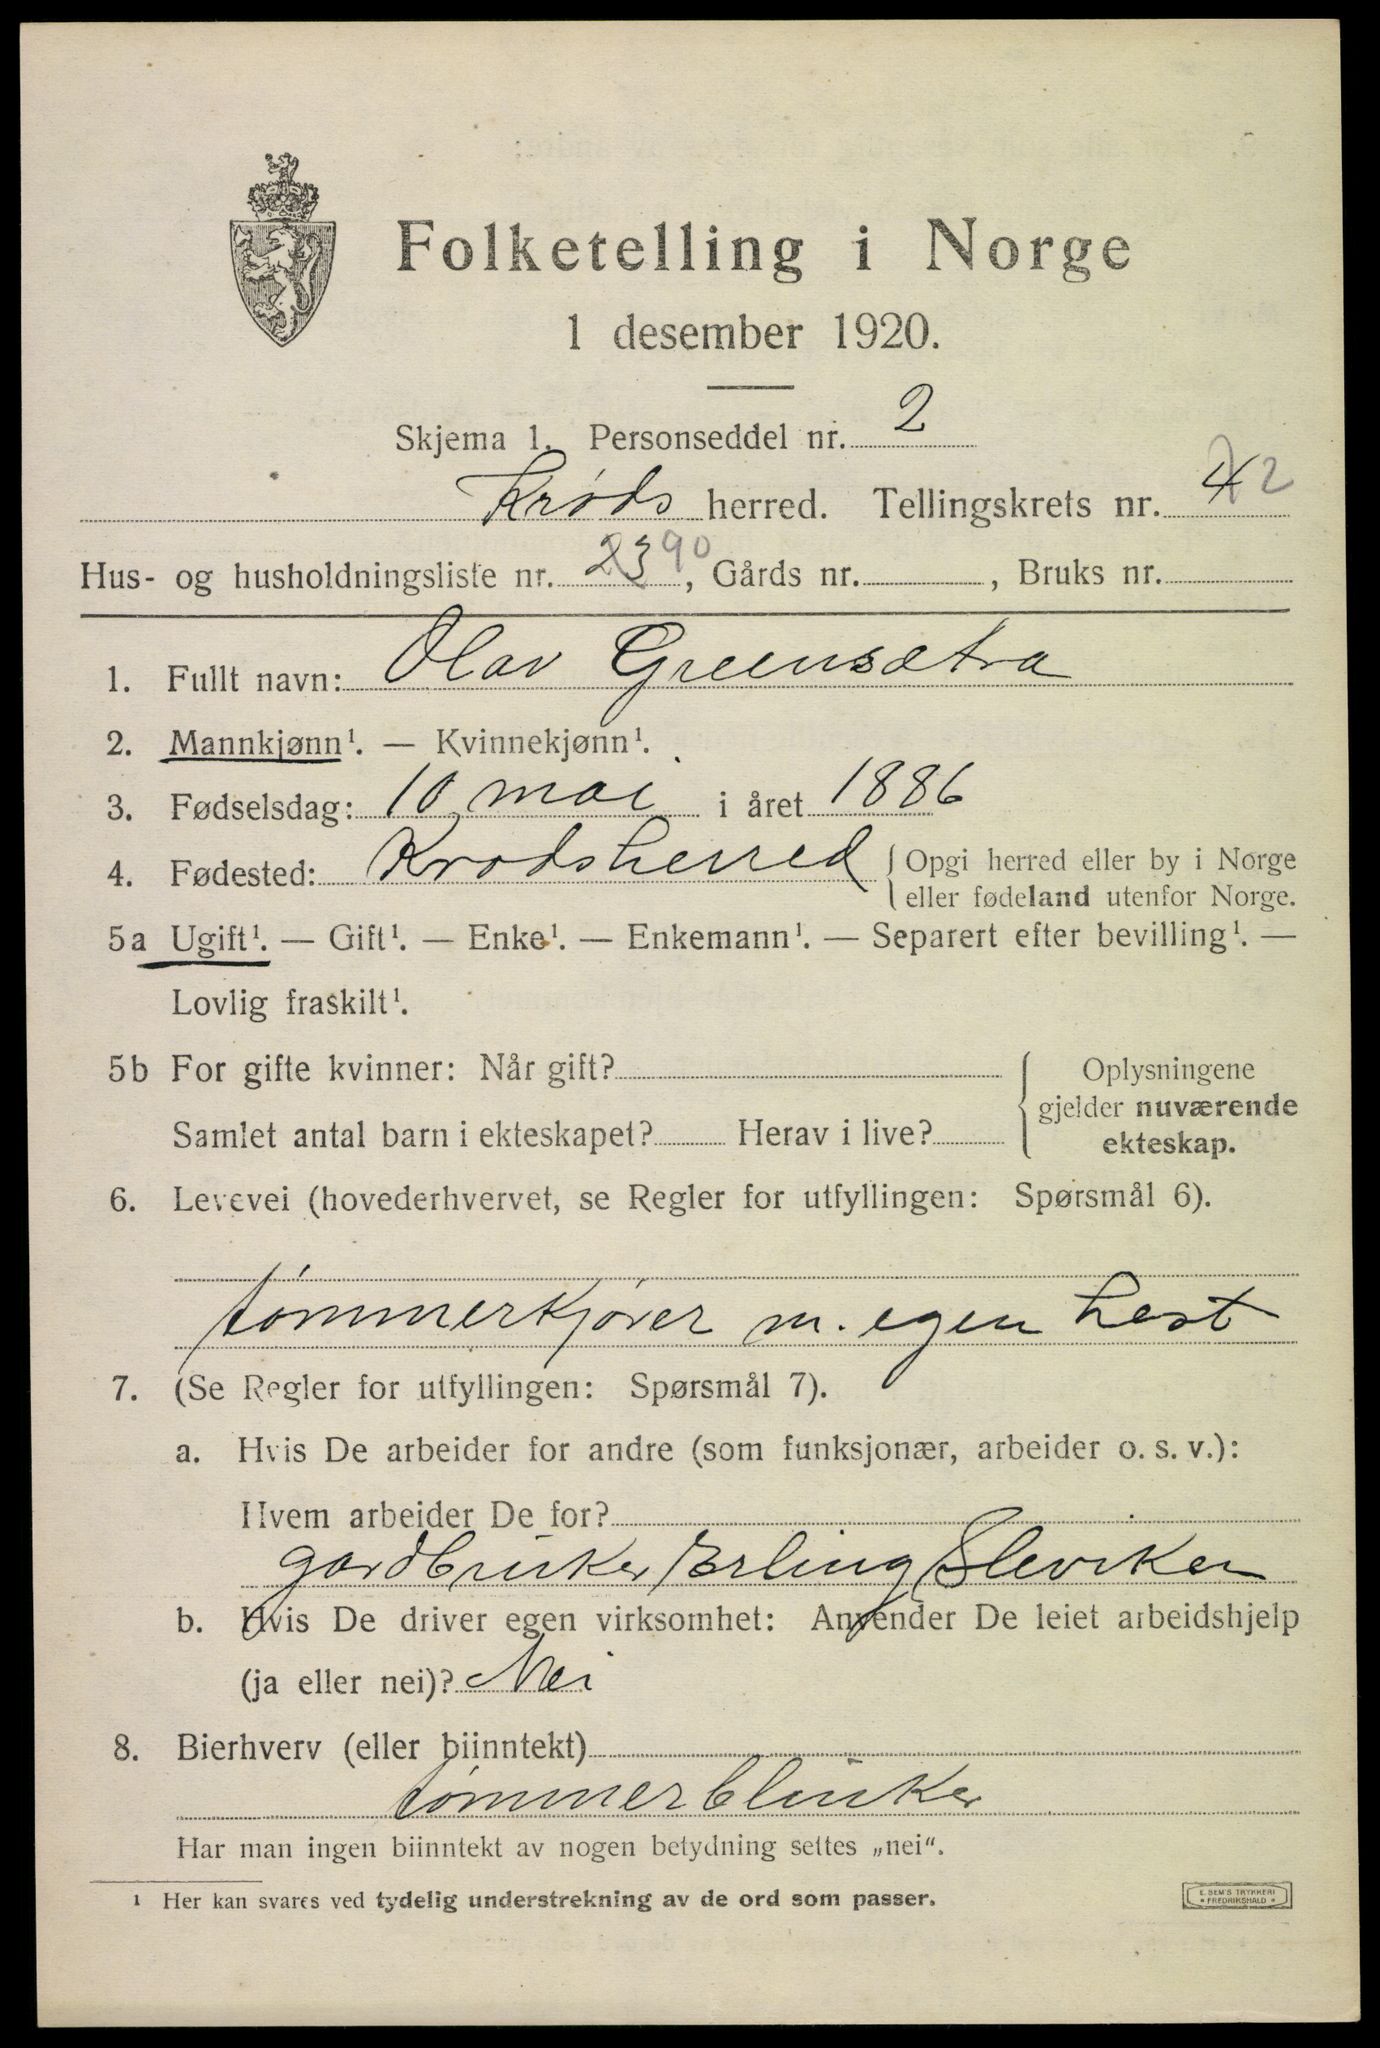 Folketelling i Norge
1 desember 1920.
Skjema 1. Personseddel nr. 2
Krøds herred. Tellingskrets nr. 4 2
Hus- og husholdningsliste nr. 23 90, Gårds nr. , Bruks nr.
1. Fullt navn: Olav Greensætra
2. Mannkjønn¹. — Kvinnekjønn¹.
3. Fødselsdag: 10 mai i året 1886
4. Fødested: Krødsherred { Opgi herred eller by i Norge
eller fødeland utenfor Norge.
5a Ugift¹. — Gift¹. — Enke¹. — Enkemann¹. — Separert efter bevilling¹. —
Lovlig fraskilt¹.
5b For gifte kvinner: Når gift? { Oplysningene
gjelder nuværende
Samlet antal barn i ekteskapet? Herav i live? ekteskap.
6. Levevei (hovederhvervet, se Regler for utfyllingen: Spørsmål 6).
tømmerkjører m. egen hest
7. (Se Regler for utfyllingen: Spørsmål 7).
a. Hvis De arbeider for andre (som funksjonær, arbeider o. s. v.):
Hvem arbeider De for?
gardbruker Erling Sleviken
b. Hvis De driver egen virksomhet: Anvender De leiet arbeidshjelp
(ja eller nei)? Nei
8. Bierhverv (eller biinntekt)
tømmerblinker
Har man ingen biinntekt av nogen betydning settes „nei“.
¹ Her kan svares ved tydelig understrekning av de ord som passer.
E. SEM'S TRYKKERI
FREDRIKSHALD